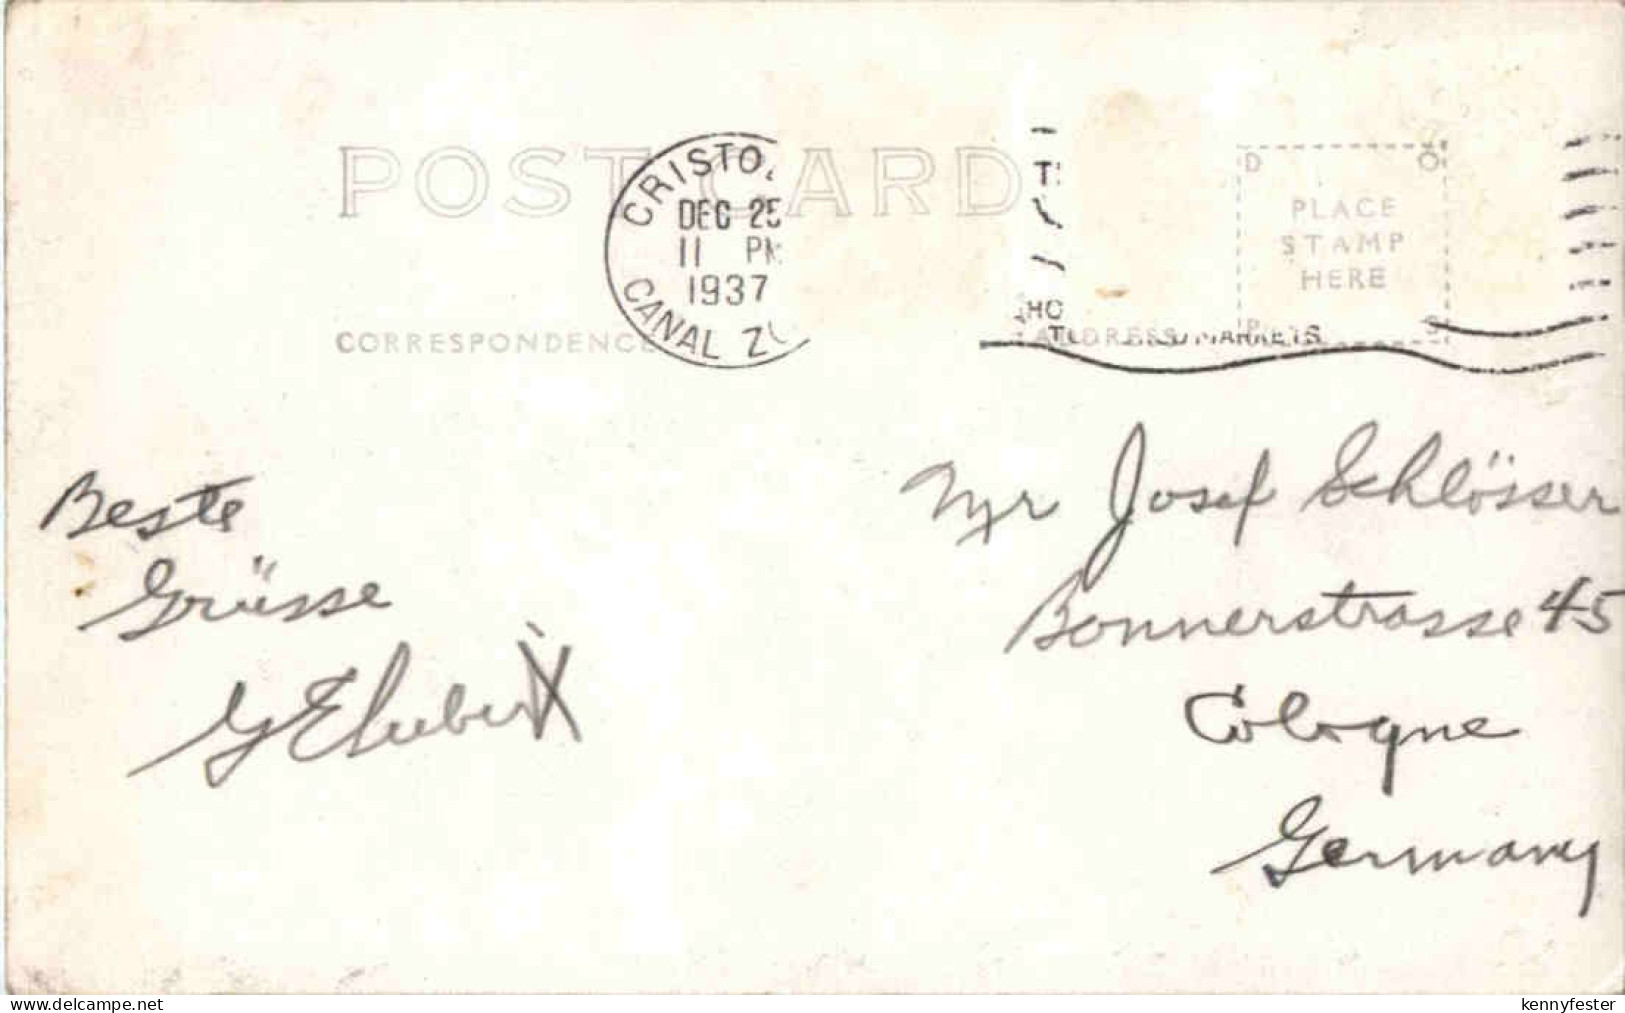 POST CARD
CRISTO
DEC 25
11 PM
1937
CANAL Z
D O
PLACE
STAMP
HERE
P S
CORRESPONDENCE
ADDRESS
Beste
Grüsse
Mr Josef Schlösser
Bonnerstrasse 45
Cologne
Germany
www.delcampe.net
kennyfester